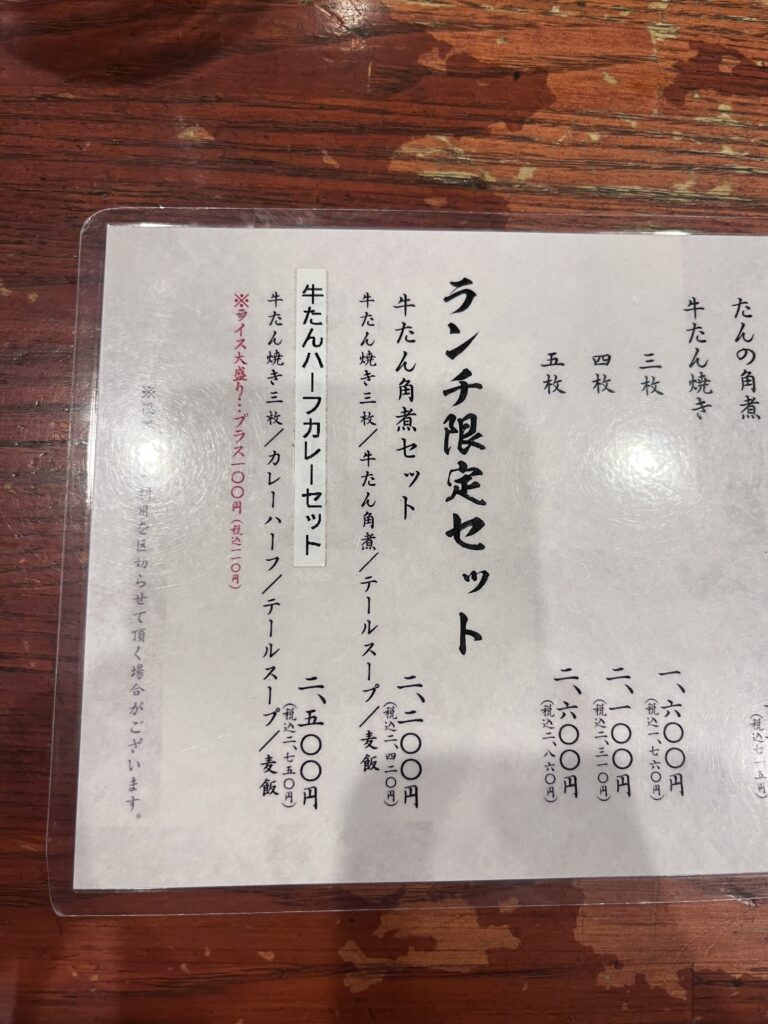 たんの角煮
(税込七一五円)
牛たん焼き
三枚 一、六〇〇円
(税込一、七六〇円)
四枚 二、一〇〇円
(税込二、三一〇円)
五枚 二、六〇〇円
(税込二、八六〇円)
ランチ限定セット
牛たん角煮セット 二、二〇〇円
(税込二、四二〇円)
牛たん焼き三枚/牛たん角煮/テールスープ/麦飯
牛たんハーフカレーセット 二、五〇〇円
(税込二、七五〇円)
牛たん焼き三枚/カレーハーフ/テールスープ/麦飯
※ライス大盛り…プラス一〇〇円(税込一一〇円)
※ 利用を区切らせて頂く場合がございます。